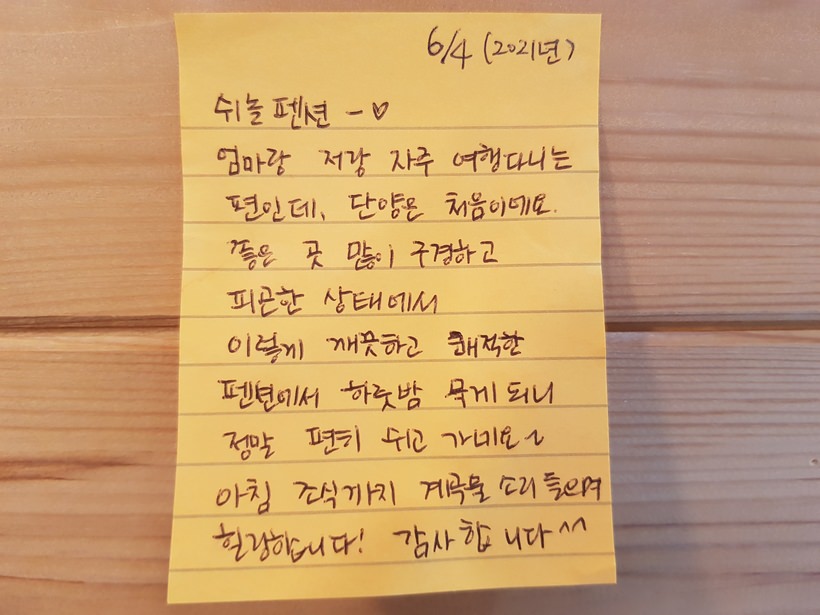 6/4 (2021년)
쉬놀펜션 - ♡
엄마랑 저랑 자주 여행다니는
편인데, 단양은 처음이에요.
좋은 곳 많이 구경하고
피곤한 상태에서
이렇게 깨끗하고 쾌적한
펜션에서 하룻밤 묵게 되니
정말 편히 쉬고 가네요~
아침 조식까지 계곡물 소리 들으며
힐링합니다! 감사합니다^^